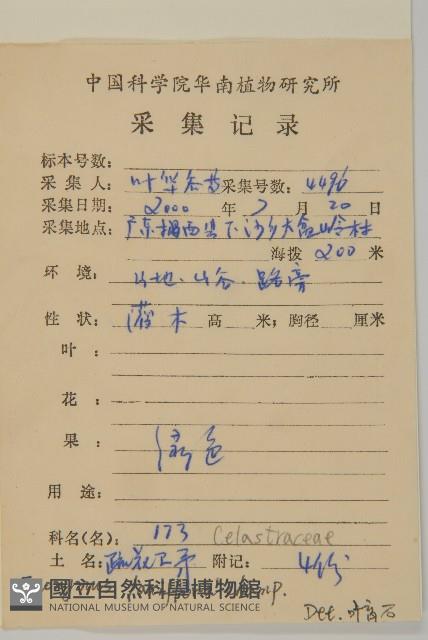 中国科学院华南植物研究所
采集记录
标本号数:
采集人: 叶华谷等 采集号数: 4496
采集日期: 2000 年 7 月 20 日
采集地点: 广东揭西县下沙乡大 岭村
海拨 200 米
环境: 山地、山谷、路旁
性状: 灌木 高 米; 胸径 厘米
叶:
花:
果: 绿色
用途:
科名(名): 173 Celastraceae
土名: 疏花卫矛 附记: 4份
國立自然科學博物館
NATIONAL MUSEUM OF NATURAL SCIENCE
Det. 叶